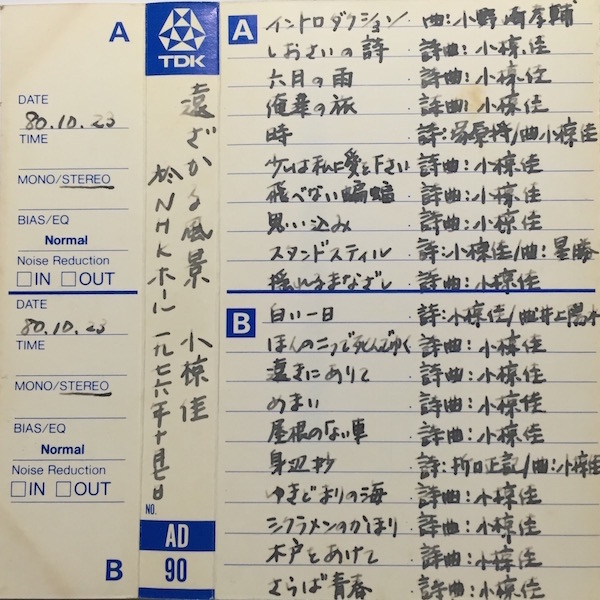 A
DATE
80.10.23
TIME
MONO/STEREO
BIAS/EQ
Normal
Noise Reduction
□IN □OUT
DATE
80.10.23
TIME
MONO/STEREO
BIAS/EQ
Normal
Noise Reduction
□IN □OUT
B
TDK
遠ざかる風景 小椋佳
於NHKホール 一九七六年十月七日
NO.
AD
90
A
イントロダクション 曲:小野崎孝輔
しおさいの詩 詩曲:小椋佳
六月の雨 詩曲:小椋佳
俺達の旅 詩曲:小椋佳
時 詩:塚原将/曲小椋佳
少しは私に愛を下さい 詩曲:小椋佳
飛べない蝙蝠 詩曲:小椋佳
思い込み 詩曲:小椋佳
スタンドスティル 詩:小椋佳/曲:星勝
揺れるまなざし 詩曲:小椋佳
B
白い一日 詩:小椋佳/曲井上陽水
ほんの二つで死んでゆく 詩曲:小椋佳
遠きにありて 詩曲:小椋佳
めまい 詩曲:小椋佳
屋根のない車 詩曲:小椋佳
身辺抄 詩:折口正記/曲:小椋佳
ゆきどまりの海 詩曲:小椋佳
シクラメンのかほり 詩曲:小椋佳
木戸をあけて 詩曲:小椋佳
さらば青春 詩曲:小椋佳